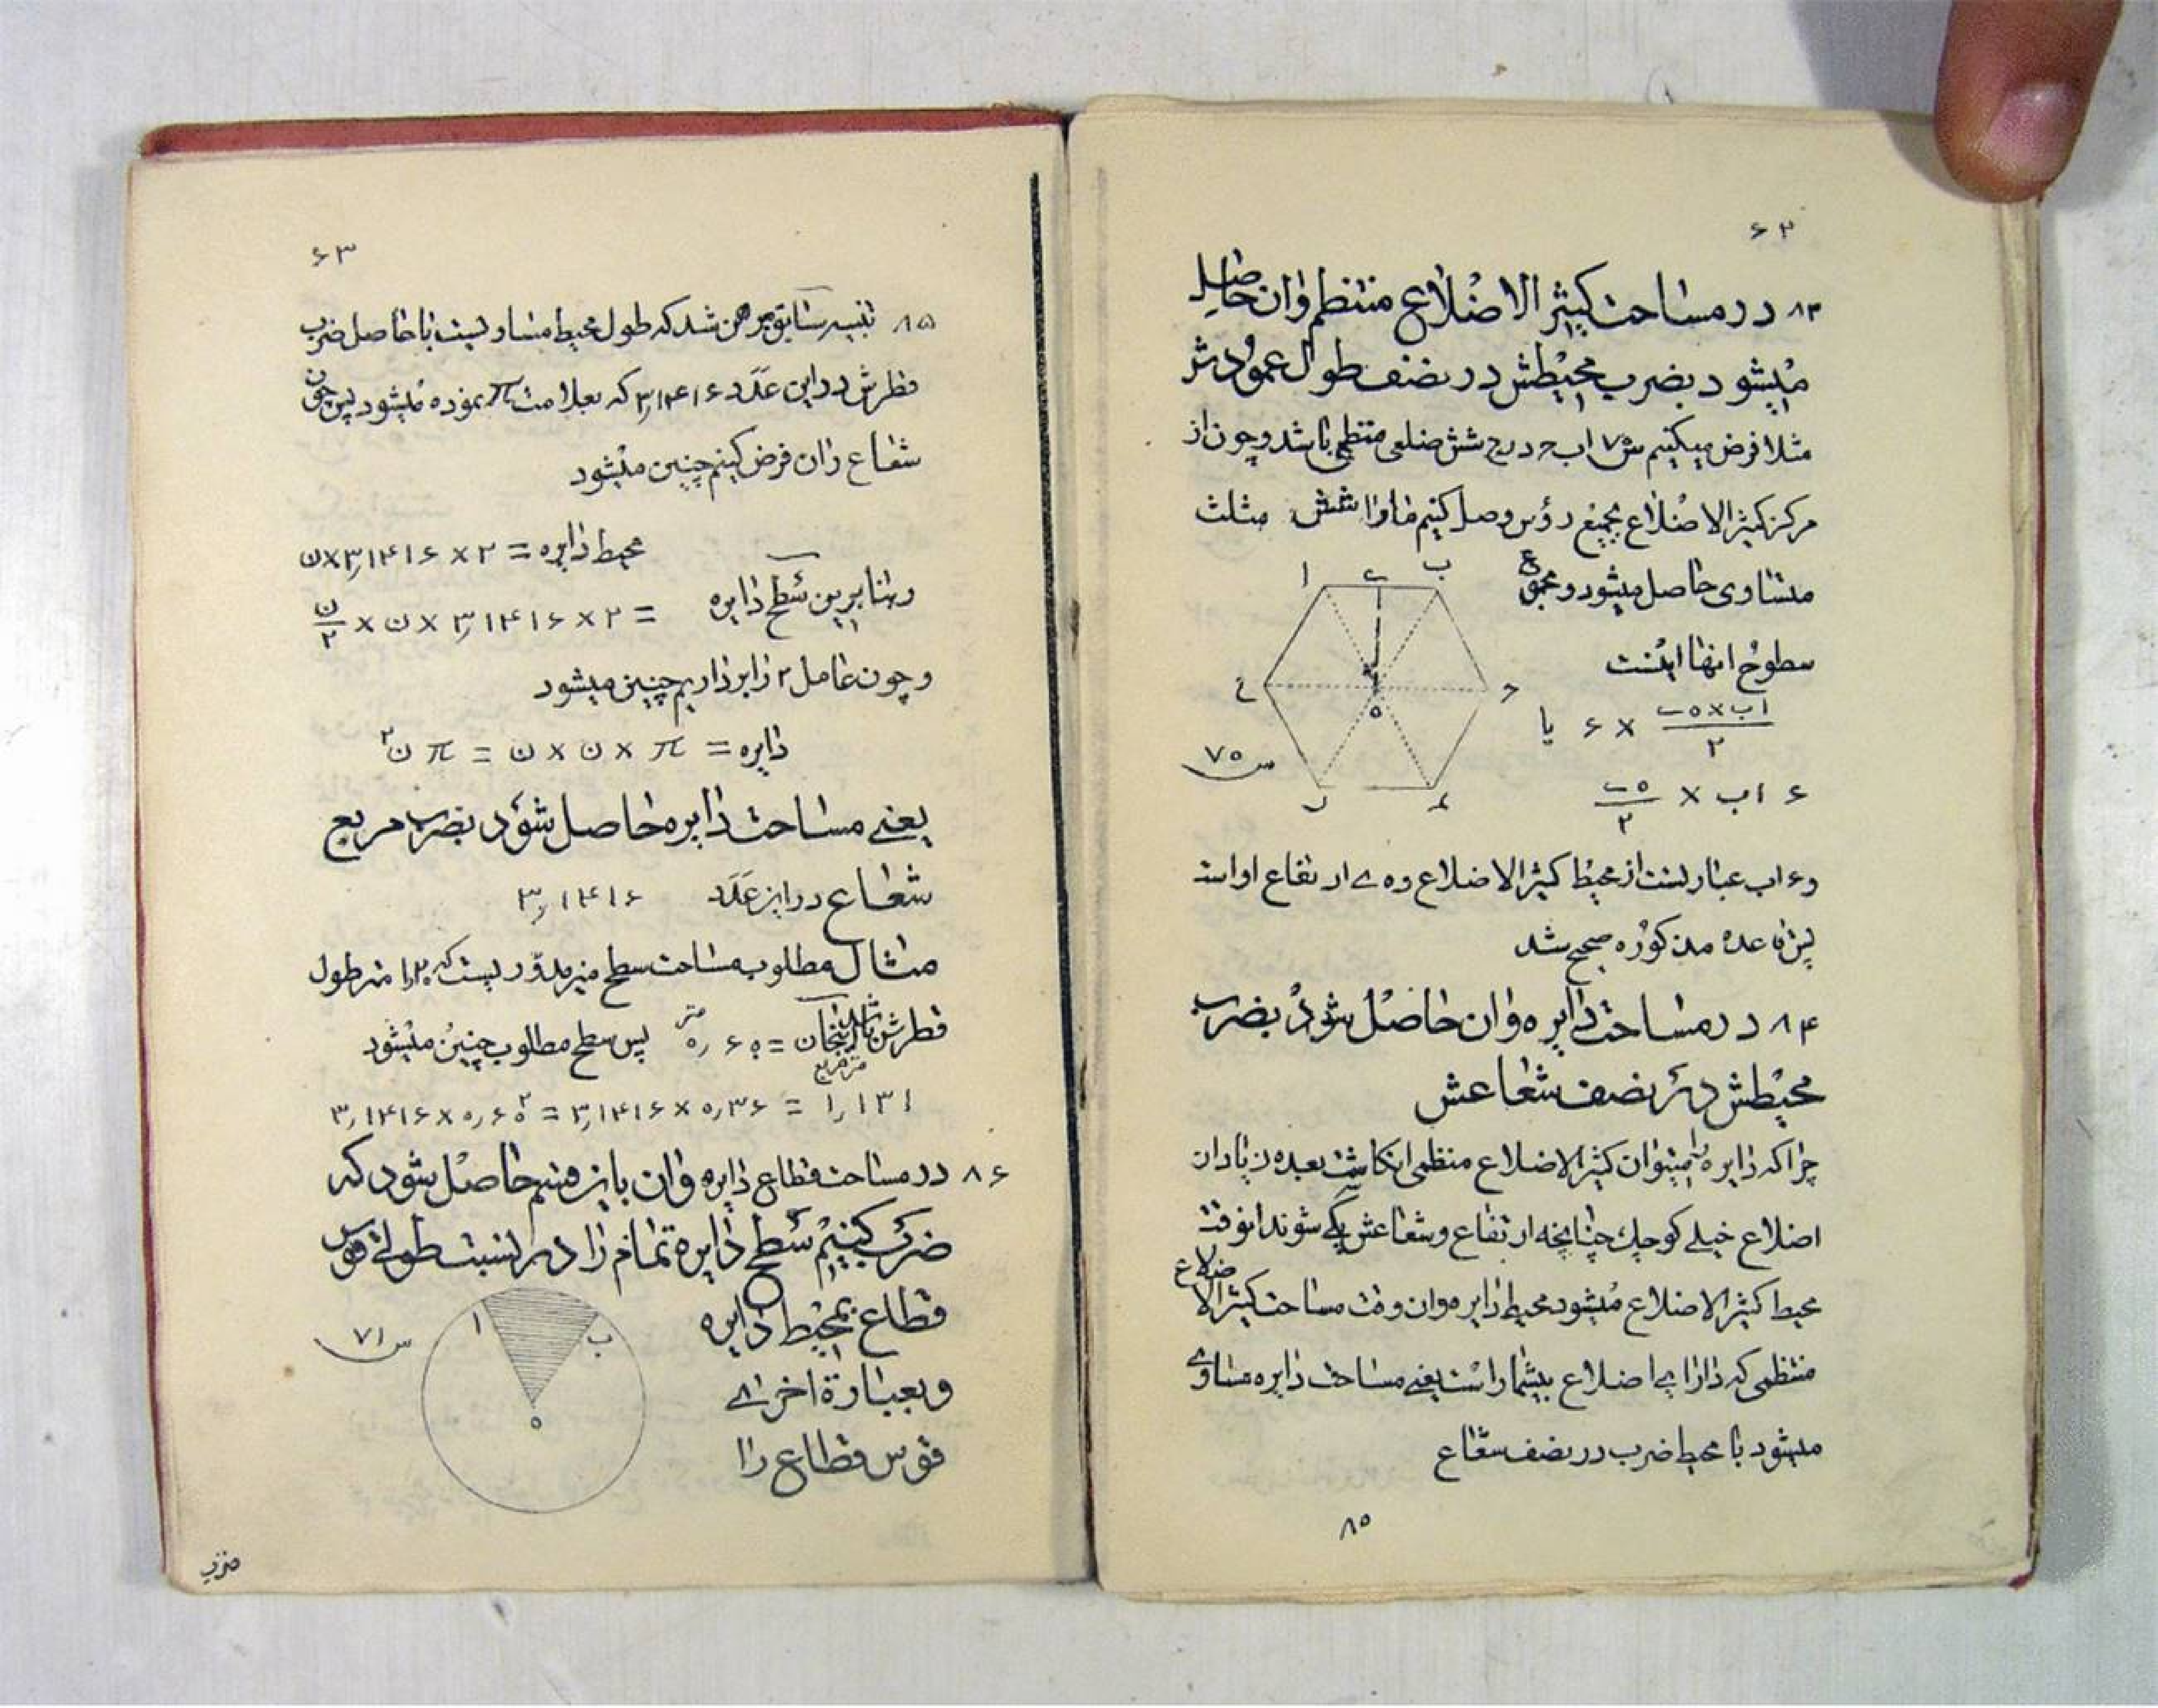 ۶۲
۸۳ در مساحت کثیر الاضلاع منتظم وان حاصل
میشود بضرب محیطش در نصف طول عمودش
مثلا فرض میکنیم ش اب ح د ر ح شش ضلعی منتظمی باشد و چون از
مرکز کثیر الاضلاع بجمیع رؤس وصل کنیم شش مثلث
متساوی حاصل میشود و مجموع
سطوح انها اینست
ا ب ی ح ع ه د
س ۷۰
اب×ه ی / ۲ × ۶ یا
۶ اب × ه ی / ۲
و ۶ اب عبارتست از محیط کثیر الاضلاع و ه ی ارتفاع اواست
پس قاعده مذکوره صحیح شد
۸۴ در مساحت دایره وان حاصل شود بضرب
محیطش در نصف شعاعش
چرا که دایره را میتوان کثیر الاضلاع منتظمی انکاشت بعده زیاد ان
اضلاع خیلی کوچک چنانچه ارتفاع و شعاعش یکی شوند انوقت
محیط کثیر الاضلاع میشود محیط دایره و ان وقت مساحت کثیر الاضلاع
منتظمی که دارای اضلاع بیشمار است یعنی مساحت دایره مساوی
میشود با محیط ضرب در نصف شعاع
۸۵
۶۳
۸۵ سابق مبرهن شد که طول محیط مساویست با حاصل ضرب
قطرش در این عدد ۳٫۱۴۱۶ که بعلامت π نموده میشود پس چون
شعاع را ن فرض کنیم چنین میشود
محیط دایره = ۲ × ۳٫۱۴۱۶ × ن
و بنابرین سطح دایره = ۲ × ۳٫۱۴۱۶ × ن × ن/۲
و چون عامل ۲ را برداریم چنین میشود
دایره = π × ن × ن = π ن۲
یعنی مساحت دایره حاصل شود بضرب مربع
شعاع در این عدد ۳٫۱۴۱۶
مثال مطلوب مساحت سطح میز مدوریست که متر طول
قطرش باشد = ۰٫۶۰ متر پس سطح مطلوب چنین میشود
۳٫۱۴۱۶×۰٫۶۰۲ = ۳٫۱۴۱۶×۰٫۳۶ = ۱٫۱۳۱ متر مربع
۸۶ در مساحت قطاع دایره وان باین قسم حاصل شود که
ضرب کنیم سطح دایره تمام را در نسبت طولی قوس
قطاع بمحیط دایره
و بعبارة اخرای
قوس قطاع را
ا ب ه
س ۷۱
ضرب